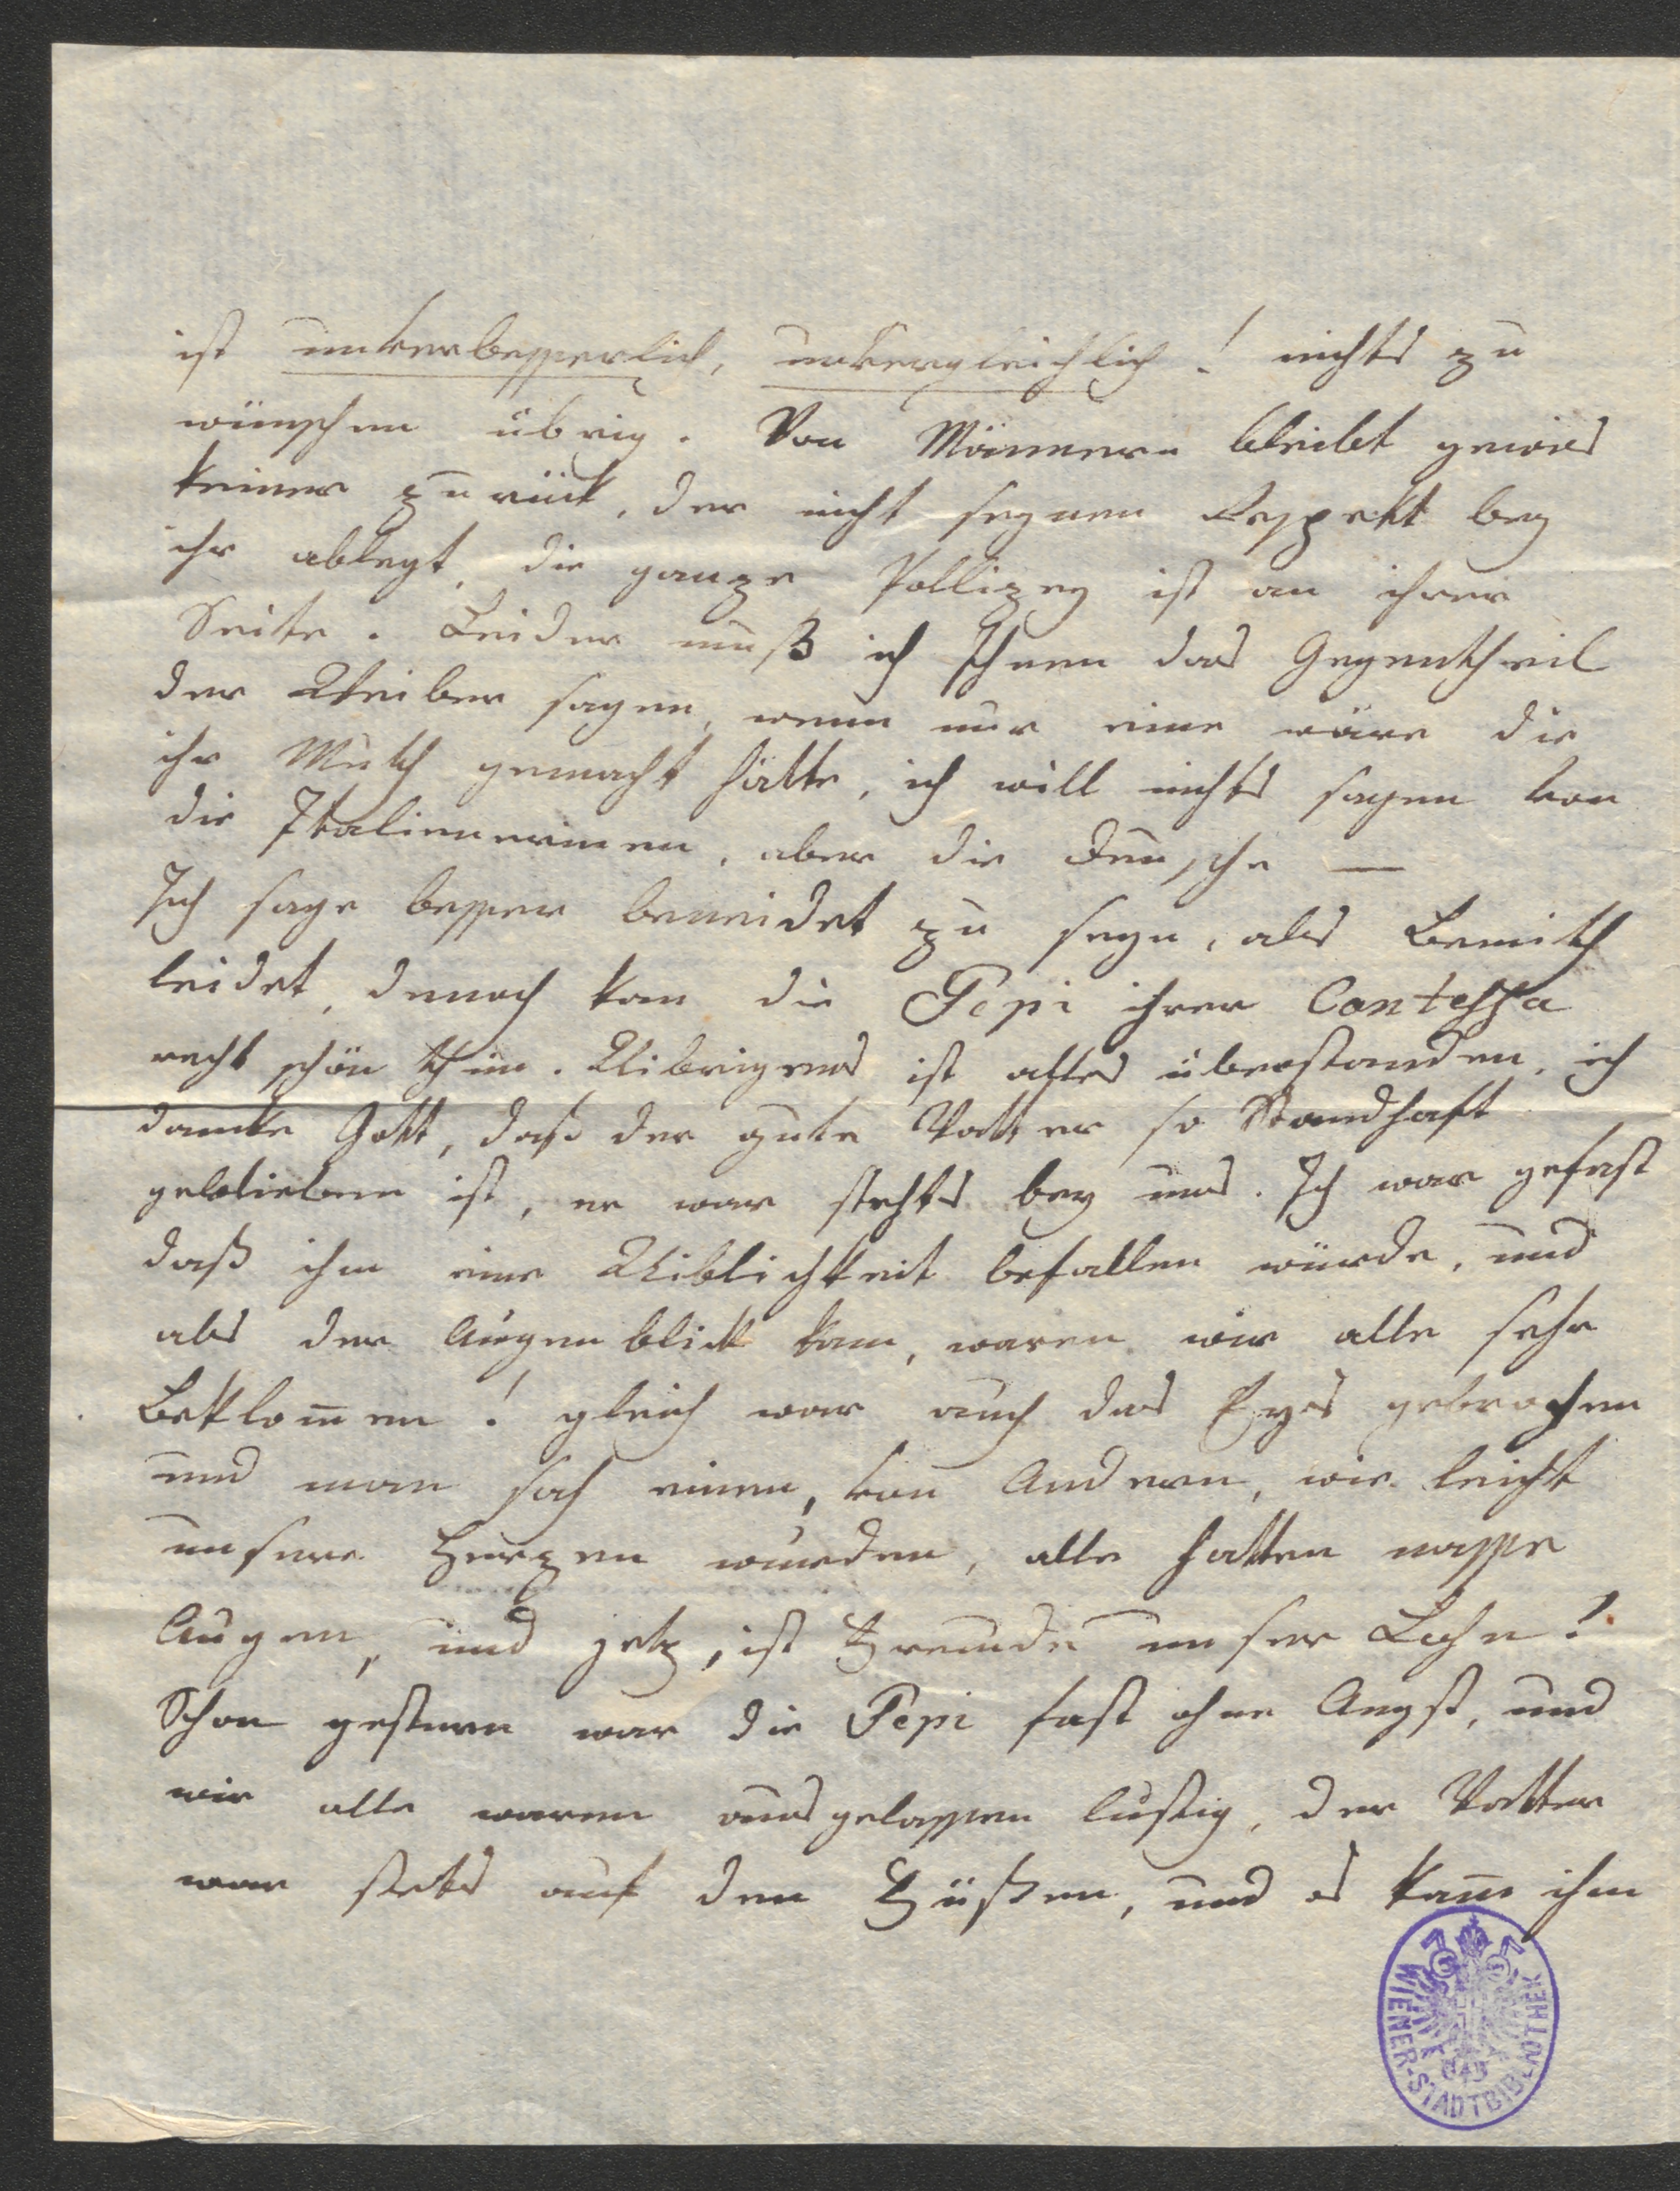 ist unverbesserlich, unvergleichlich! nichts zu
wünschen übrig. Von Männern bleibt gewies
keiner zurück, der nicht seynen Respekt bey
ihr ablegt, die ganze Pollizey ist an ihrer
Seite. Leider muß ich Ihnen das Gegentheil
der Weiber sagen, wenn nur eine wäre die
ihr Muth gemacht hätte, ich will nichts sagen von
die Italienerinen, aber die Deusche —
Ich sage besser beneidet zu seyn, als Bemitth
leidet, denoch kan die Pepi ihrer Contessa
recht schön thun. Uibrigens ist alles überstanden, ich
dancke Gott, daß der gute Vatter so Standhaft
geblieben ist, er war stehts bey uns. Ich war gefast
daß ihm eine Uiblichkeit befallen würde, und
als der Augenblick kam, waren wir alle sehr
Beklom̅en! gleich war auch das Eys gebrochen
und man sah einen, von Andern, wie leicht
unsere Herzen wurden, alle hatten nasse
Augen, und jetz, ist Freude unser Lohn!
Schon gestern war die Pepi fast ohne Angst, und
wir alle waren ausgelassen lustig, der Vatter
war stets auf den Füßen, und es kam̅ ihm
WIENER-STADTBIBLIOTHEK